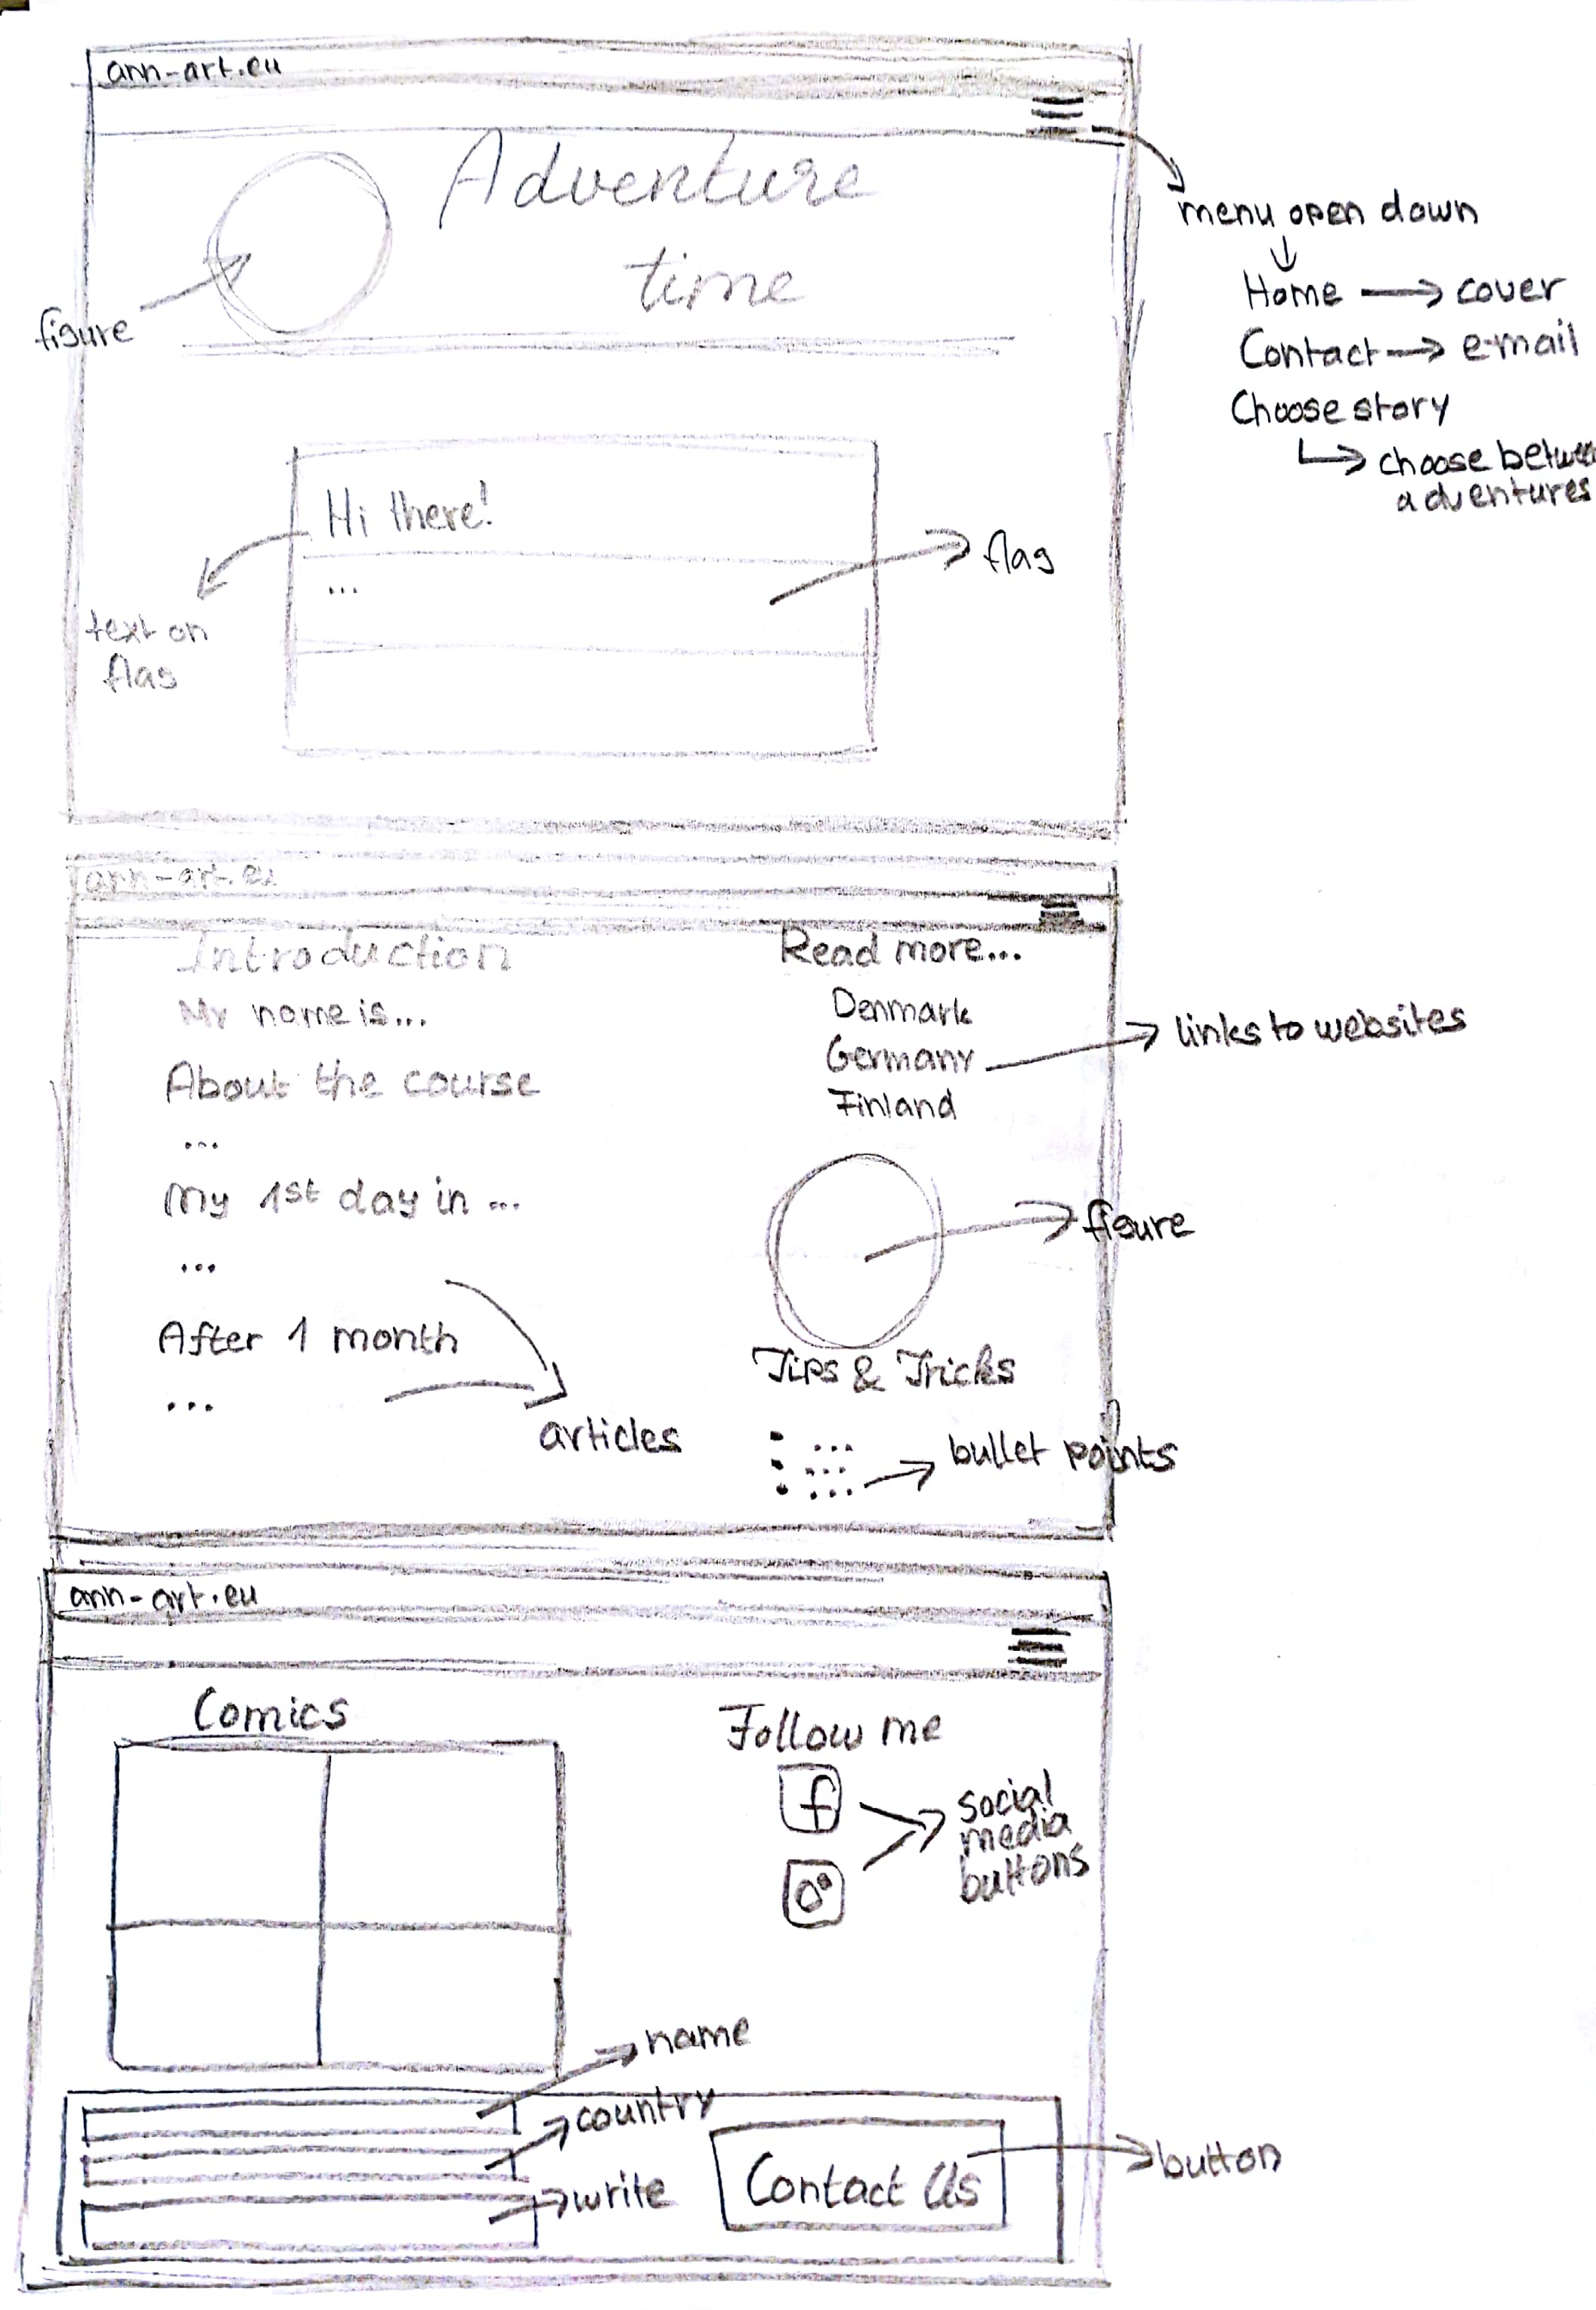 ann-art.eu
Adventure
time
figure
menu open down
Home → cover
Contact → e-mail
Choose story
choose between
adventures
Hi there!
...
flag
text on
flag
ann-art.eu
Introduction
My name is...
About the course
...
My 1st day in ...
...
After 1 month
...
articles
Read more...
Denmark
Germany
Finland
links to websites
figure
Tips & Tricks
• ...
• ...
• ...
bullet points
ann-art.eu
Comics
Follow me
f
social
media
buttons
name
country
write
Contact Us
button